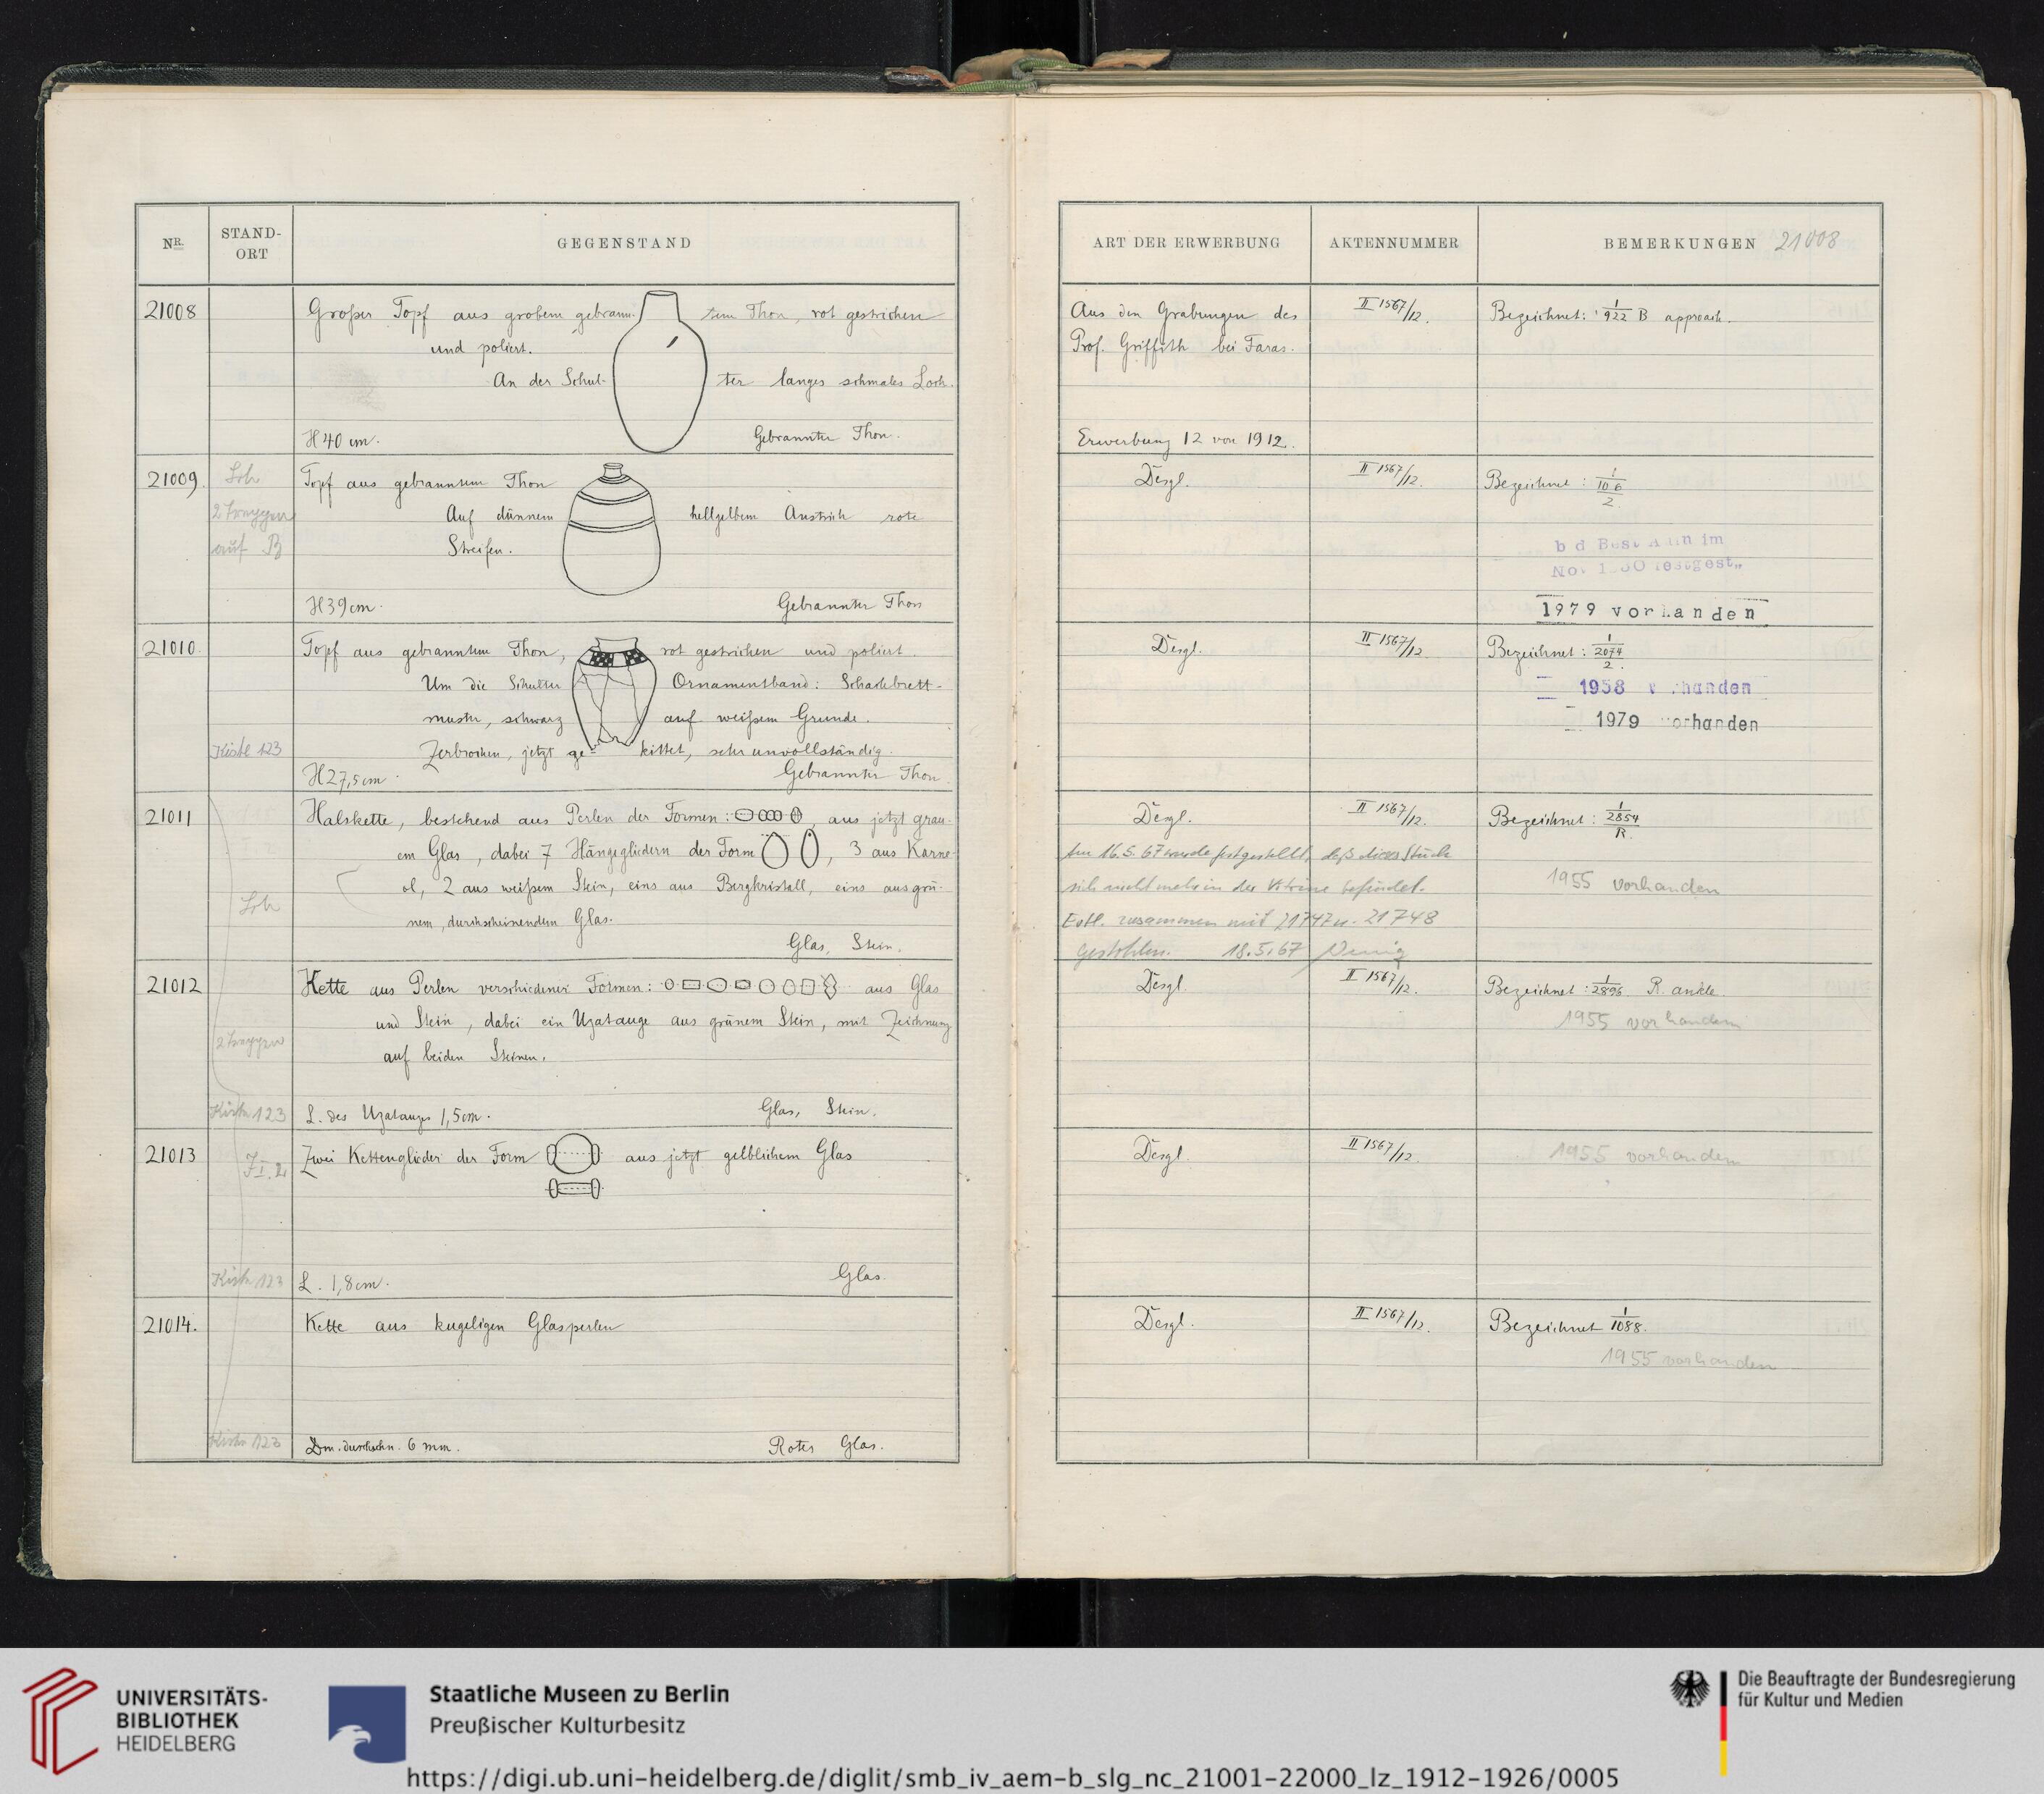 NR.
STAND-
ORT
GEGENSTAND
ART DER ERWERBUNG
AKTENNUMMER
BEMERKUNGEN 21008
21008
Großer Topf aus grobem gebrann-tem Thon, rot gestrichen
und poliert.
An der Schul-ter langes schmales Loch.
H 40 cm.
Gebrannter Thon.
Aus den Grabungen des
Prof. Griffith bei Faras.
Erwerbung 12 von 1912.
II 1567/12.
Bezeichnet: 1/922 B approach.
21009.
2 Treppen
auf B
Topf aus gebranntem Thon
Auf dünnem hellgelbem Anstrich rote
Streifen.
H 39 cm.
Gebrannter Thon
Desgl.
II 1567/12.
Bezeichnet: 1/106/2.
1979 vorhanden
21010.
Kiste 123
Topf aus gebranntem Thon, rot gestrichen und poliert.
Um die Schulter Ornamentband: Schachbrett-
muster, schwarz auf weißem Grunde.
Zerbrochen, jetzt ge-kittet, sehr unvollständig.
H 27,5 cm.
Gebrannter Thon.
Desgl.
II 1567/12.
Bezeichnet: 1/2074/2.
1958 vorhanden
1979 vorhanden
21011
Halskette, bestehend aus Perlen der Formen: , aus jetzt grau-
em Glas, dabei 7 Hängegliedern der Form , 3 aus Karne-
ol, 2 aus weißem Stein, eins aus Bergkristall, eins aus grü-
nem, durchscheinendem Glas.
Glas, Stein.
Desgl.
II 1567/12.
Am 16.5.67 wurde festgestellt, daß dieses Stück
sich nicht mehr in der Vitrine befindet.
Evtl. zusammen mit 21747 u. 21748
gestohlen. 18.5.67
Bezeichnet: 1/2854/R.
1955 vorhanden
21012
2 Treppen
Kiste 123
Kette aus Perlen verschiedener Formen: aus Glas
und Stein, dabei ein Uzatauge aus grünem Stein, mit Zeichnung
auf beiden Steinen.
L. des Uzatauges 1,5 cm.
Glas, Stein.
Desgl.
II 1567/12.
Bezeichnet: 1/2896. R. ankle.
1955 vorhanden
21013
Kiste 123
Zwei Kettenglieder der Form aus jetzt gelblichem Glas
L. 1,8 cm.
Glas.
Desgl.
II 1567/12.
1955 vorhanden
21014.
Kiste 123
Kette aus kugeligen Glasperlen
Dm. durchschn. 6 mm.
Rotes Glas.
Desgl.
II 1567/12.
Bezeichnet 1/1088.
1955 vorhanden
UNIVERSITÄTS-
BIBLIOTHEK
HEIDELBERG
Staatliche Museen zu Berlin
Preußischer Kulturbesitz
Die Beauftragte der Bundesregierung
für Kultur und Medien
https://digi.ub.uni-heidelberg.de/diglit/smb_iv_aem-b_slg_nc_21001-22000_lz_1912-1926/0005